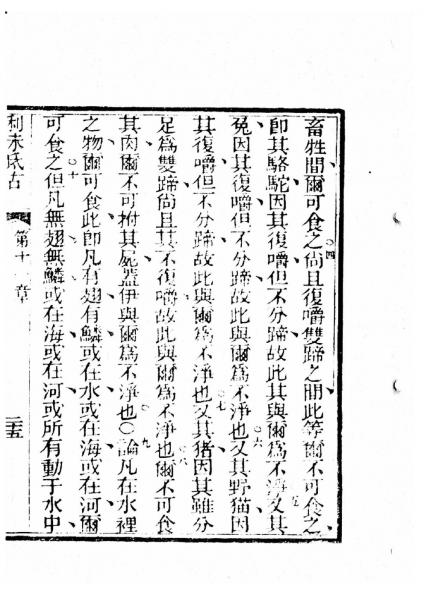 畜牲間爾可食之尚且復嚼雙蹄之間此等爾不可食之
四
即其駱駝因其復嚼但不分蹄故此其與爾爲不淨又其
五
兔因其復嚼但不分蹄故此與爾爲不淨也又其野猫因
六
其復嚼但不分蹄故此與爾爲不淨也又其猪因其雖分
七
足爲雙蹄尚且其不復嚼故此與爾爲不淨也爾不可食
八
其肉爾不可拊其屍蓋伊與爾爲不淨也〇論凡在水裡
九
之物爾可食此即凡有翅有鱗或在水或在海或在河爾
可食之但凡無翅無鱗或在海或在河或所有動于水中
十
利未氏古 第十一章 二五